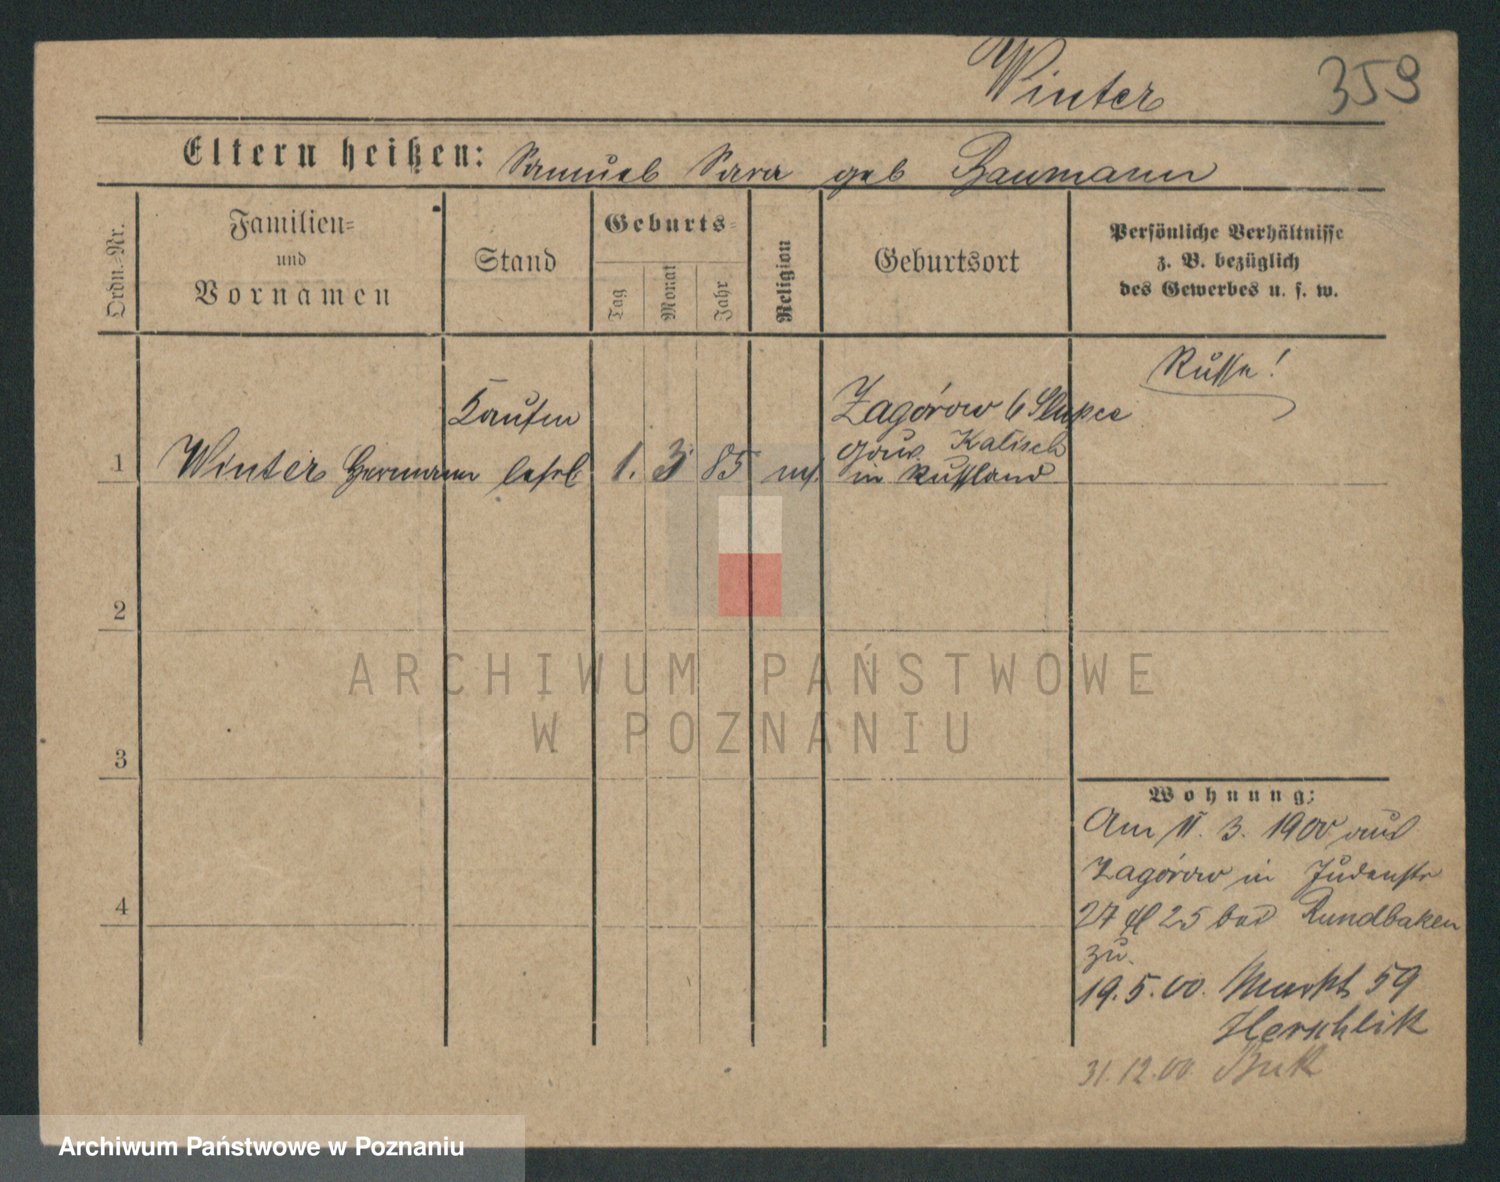 Winter
359
Eltern heißen: Samuel Sara geb Baumann
Ordn.-Nr.
Familien-
und
Vornamen
Stand
Geburts-
Tag
Monat
Jahr
Religion
Geburtsort
Persönliche Verhältnisse
z. B. bezüglich
des Gewerbes u. s. w.
Russe!
1
Winter Hermann
Kaufm
lehrl
1. 3 85
ms.
Zagórow b Slupce
Gouv. Kalisch
in Russland
2
3
4
Wohnung:
Am 11. 3. 1900 aus
Zagórow in Judenstr
27 25 bei Rundbaken
zu.
19.5.00. Markt 59
Herschlik
31.12.00 Buk
ARCHIWUM PAŃSTWOWE
W POZNANIU
Archiwum Państwowe w Poznaniu